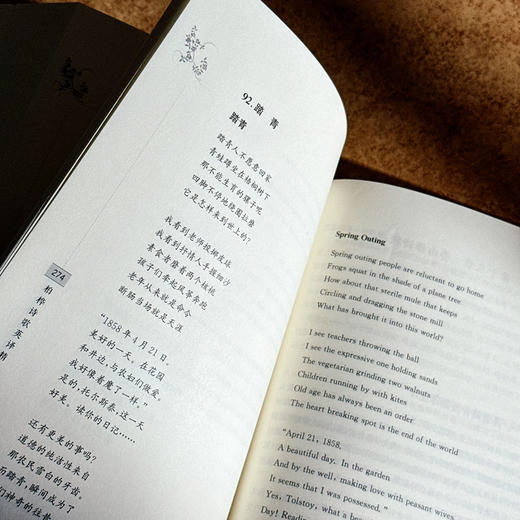 92.踏 青
踏青
踏青人不愿意回家
青蛙蹲坐在梧桐树下
那不能生育的骡子呢
四脚不停地绕圈拉磨
它是怎样来到世上的?
我看到老师投掷皮球
我看到抒情人手握细沙
素食者磨着两个核桃
孩子们牵起风筝奔跑
老年从来就是命令
断肠当场就是天涯
“1858年4月21日。
美好的一天。在花园
和井边,与农妇们做爱。
我好像着了魔一样。”
是的,托尔斯泰,这一天
好美。读你的日记……
还有更美的事吗?
道德的纯洁性来自
那农民雪白的牙齿。
而踏青,瞬间成为了
们神奇的往昔
274
柏桦诗歌英译精
Spring Outing
Spring outing people are reluctant to go home
Frogs squat in the shade of a plane tree
How about that sterile mule that keeps
Circling and dragging the stone mill
What has brought it into this world?
I see teachers throwing the ball
I see the expressive one holding sands
The vegetarian grinding two walnuts
Children running by with kites
Old age has always been an order
The heart breaking spot is the end of the world
“April 21, 1858.
A beautiful day. In the garden
And by the well, making love with peasant wives.
It seems that I was possessed.”
Yes, Tolstoy, what a
Day!